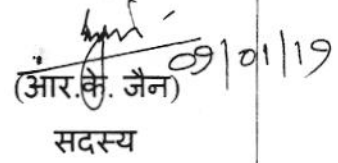 09/01/19
(आर.के. जैन)
सदस्य